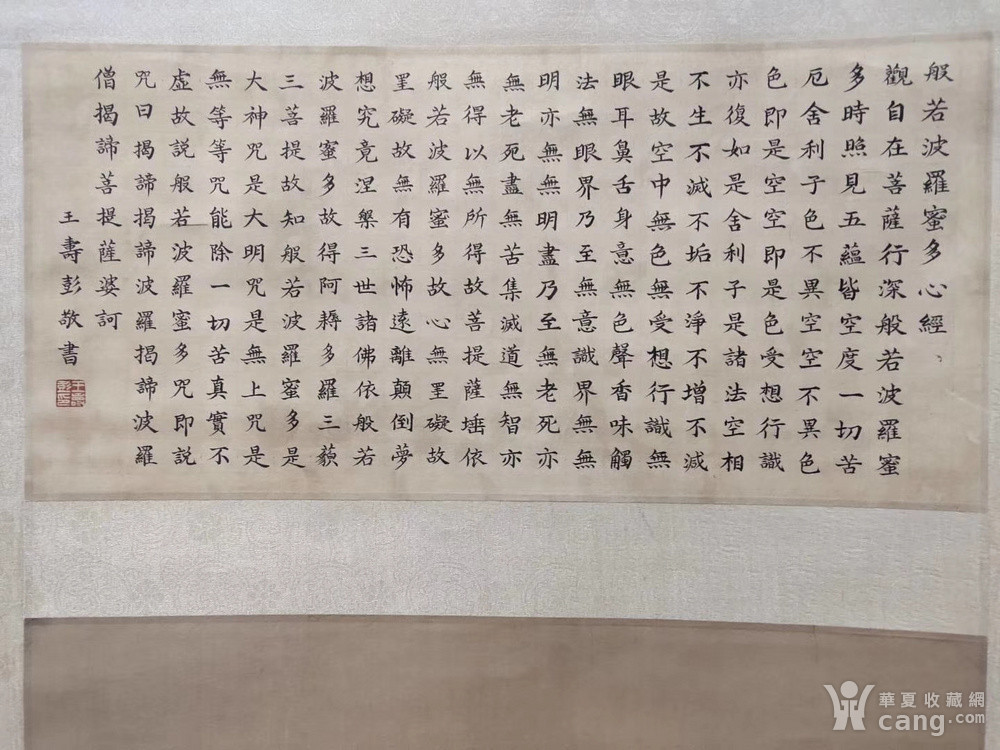 般若波羅蜜多心經、
觀自在菩薩行深般若波羅蜜
多時照見五蘊皆空度一切苦
厄舍利子色不異空空不異色
色即是空空即是色受想行識
亦復如是舍利子是諸法空相
不生不滅不垢不淨不增不減
是故空中無色無受想行識無
眼耳鼻舌身意無色聲香味觸
法無眼界乃至無意識界無無
明亦無無明盡乃至無老死亦
無老死盡無苦集滅道無智亦
無得以無所得故菩提薩埵依
般若波羅蜜多故心無罣礙故
罣礙故無有恐怖遠離顛倒夢
想究竟涅槃三世諸佛依般若
波羅蜜多故得阿耨多羅三藐
三菩提故知般若波羅蜜多是
大神咒是大明咒是無上咒是
無等等咒能除一切苦真實不
虛故說般若波羅蜜多咒即說
咒曰揭諦揭諦波羅揭諦波羅
僧揭諦菩提薩婆訶
王壽彭敬書
華夏收藏網
cang.com